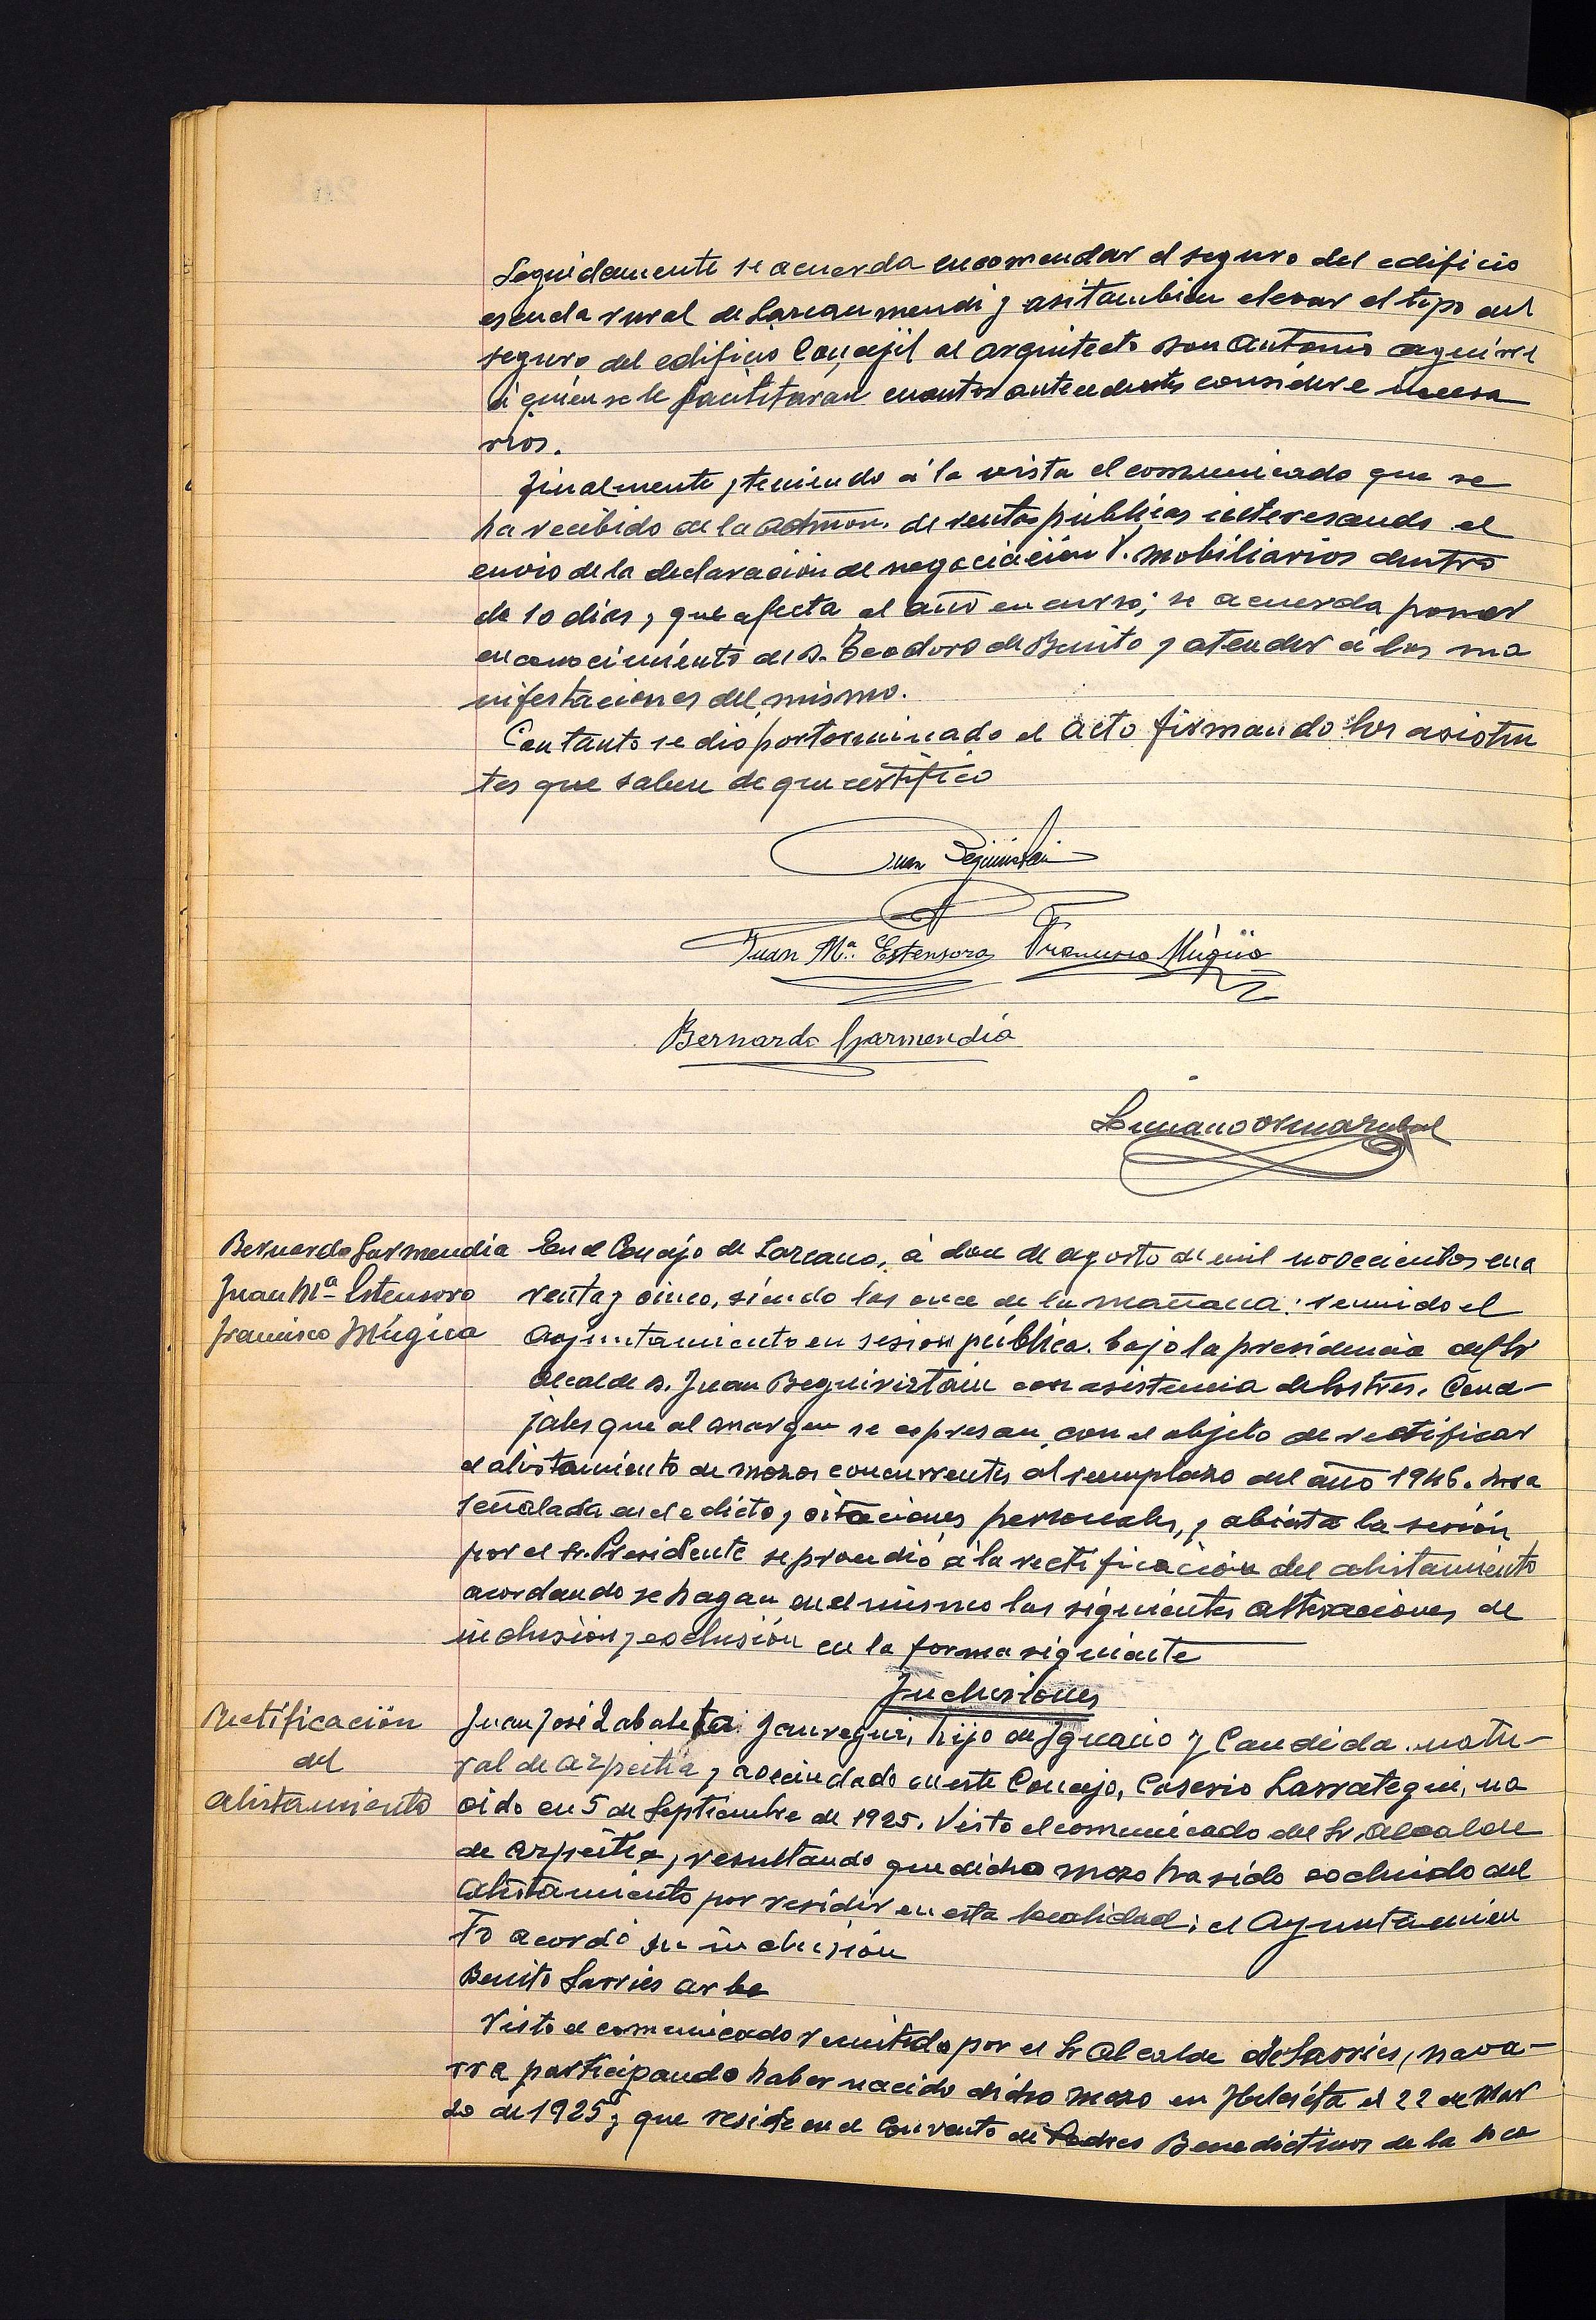 Seguidamente se acuerda encomendar el seguro del edificio
escuela rural de Lazcaumendi y asi tambien elevar el tipo del
seguro del edificio Concejil al arquitecto Don Antonio Aguirre
á quien se le facilitaran cuantos antecedentes considere necesa
rios.
Finalmente, teniendo á la vista el comunicado que se
ha recibido de la Admon. de rentas públicas interesando el
envio de la declaración de negociación V. mobiliarios dentro
de 10 dias, que afecta al año en curso; se acuerda poner
en conocimiento de D. Teodoro de Benito y atender á las ma
nifestaciones del mismo.
Con tanto se dio por terminado el acto firmando los asisten
tes que saben de que certifico
Juan Beguiristain
Juan Mª. Estensoro Francisco Múgica
Bernardo Garmendia
Luciano
Bernardo Garmendia
Juan Mª Estensoro
Francisco Múgica
En el Concejo de Lazcano, á doce de agosto de mil novecientos cua
renta y cinco, siendo las once de la mañana: reunido el
Ayuntamiento en sesion pública. bajo la presidencia del Sr
Alcalde D. Juan Beguiriztain con asistencia de los tres. Conce-
jales que al margen se espresan, con el objeto de rectificar
el alistamiento de mozos concurrentes al remplazo del año 1946. hora
señalada en el edicto, y citaciones personales, y abierta la sesión
por el Sr. Presidente se procedió á la rectificación del alistamiento
acordando se hagan en el mismo las siguientes alteraciones de
inclusión y esclusión en la forma siguiente
Inclusiones
Rectificación
del
alistamiento
Juan José Zabaleta Jauregui, hijo de Ignacio y Candida. natu-
ral de Azpeitia y avecindado en este Concejo, Caserio Larrategui, na
cido en 5 de Septiembre de 1925. Visto el comunicado del Sr. Alcalde
de Azpeitia, resultando que dicho mozo ha sido escluido del
alistamiento por residir en esta localidad; el Ayuntamien
to acordó su inclusión
Benito Sarries Arbe
Visto el comunicado remitido por el Sr Alcalde de Sarries, nava-
rra participando haber nacido dicho mozo en el 22 de Mar
zo de 1925, y que reside en el Convento de Padres Benedictinos de la loca